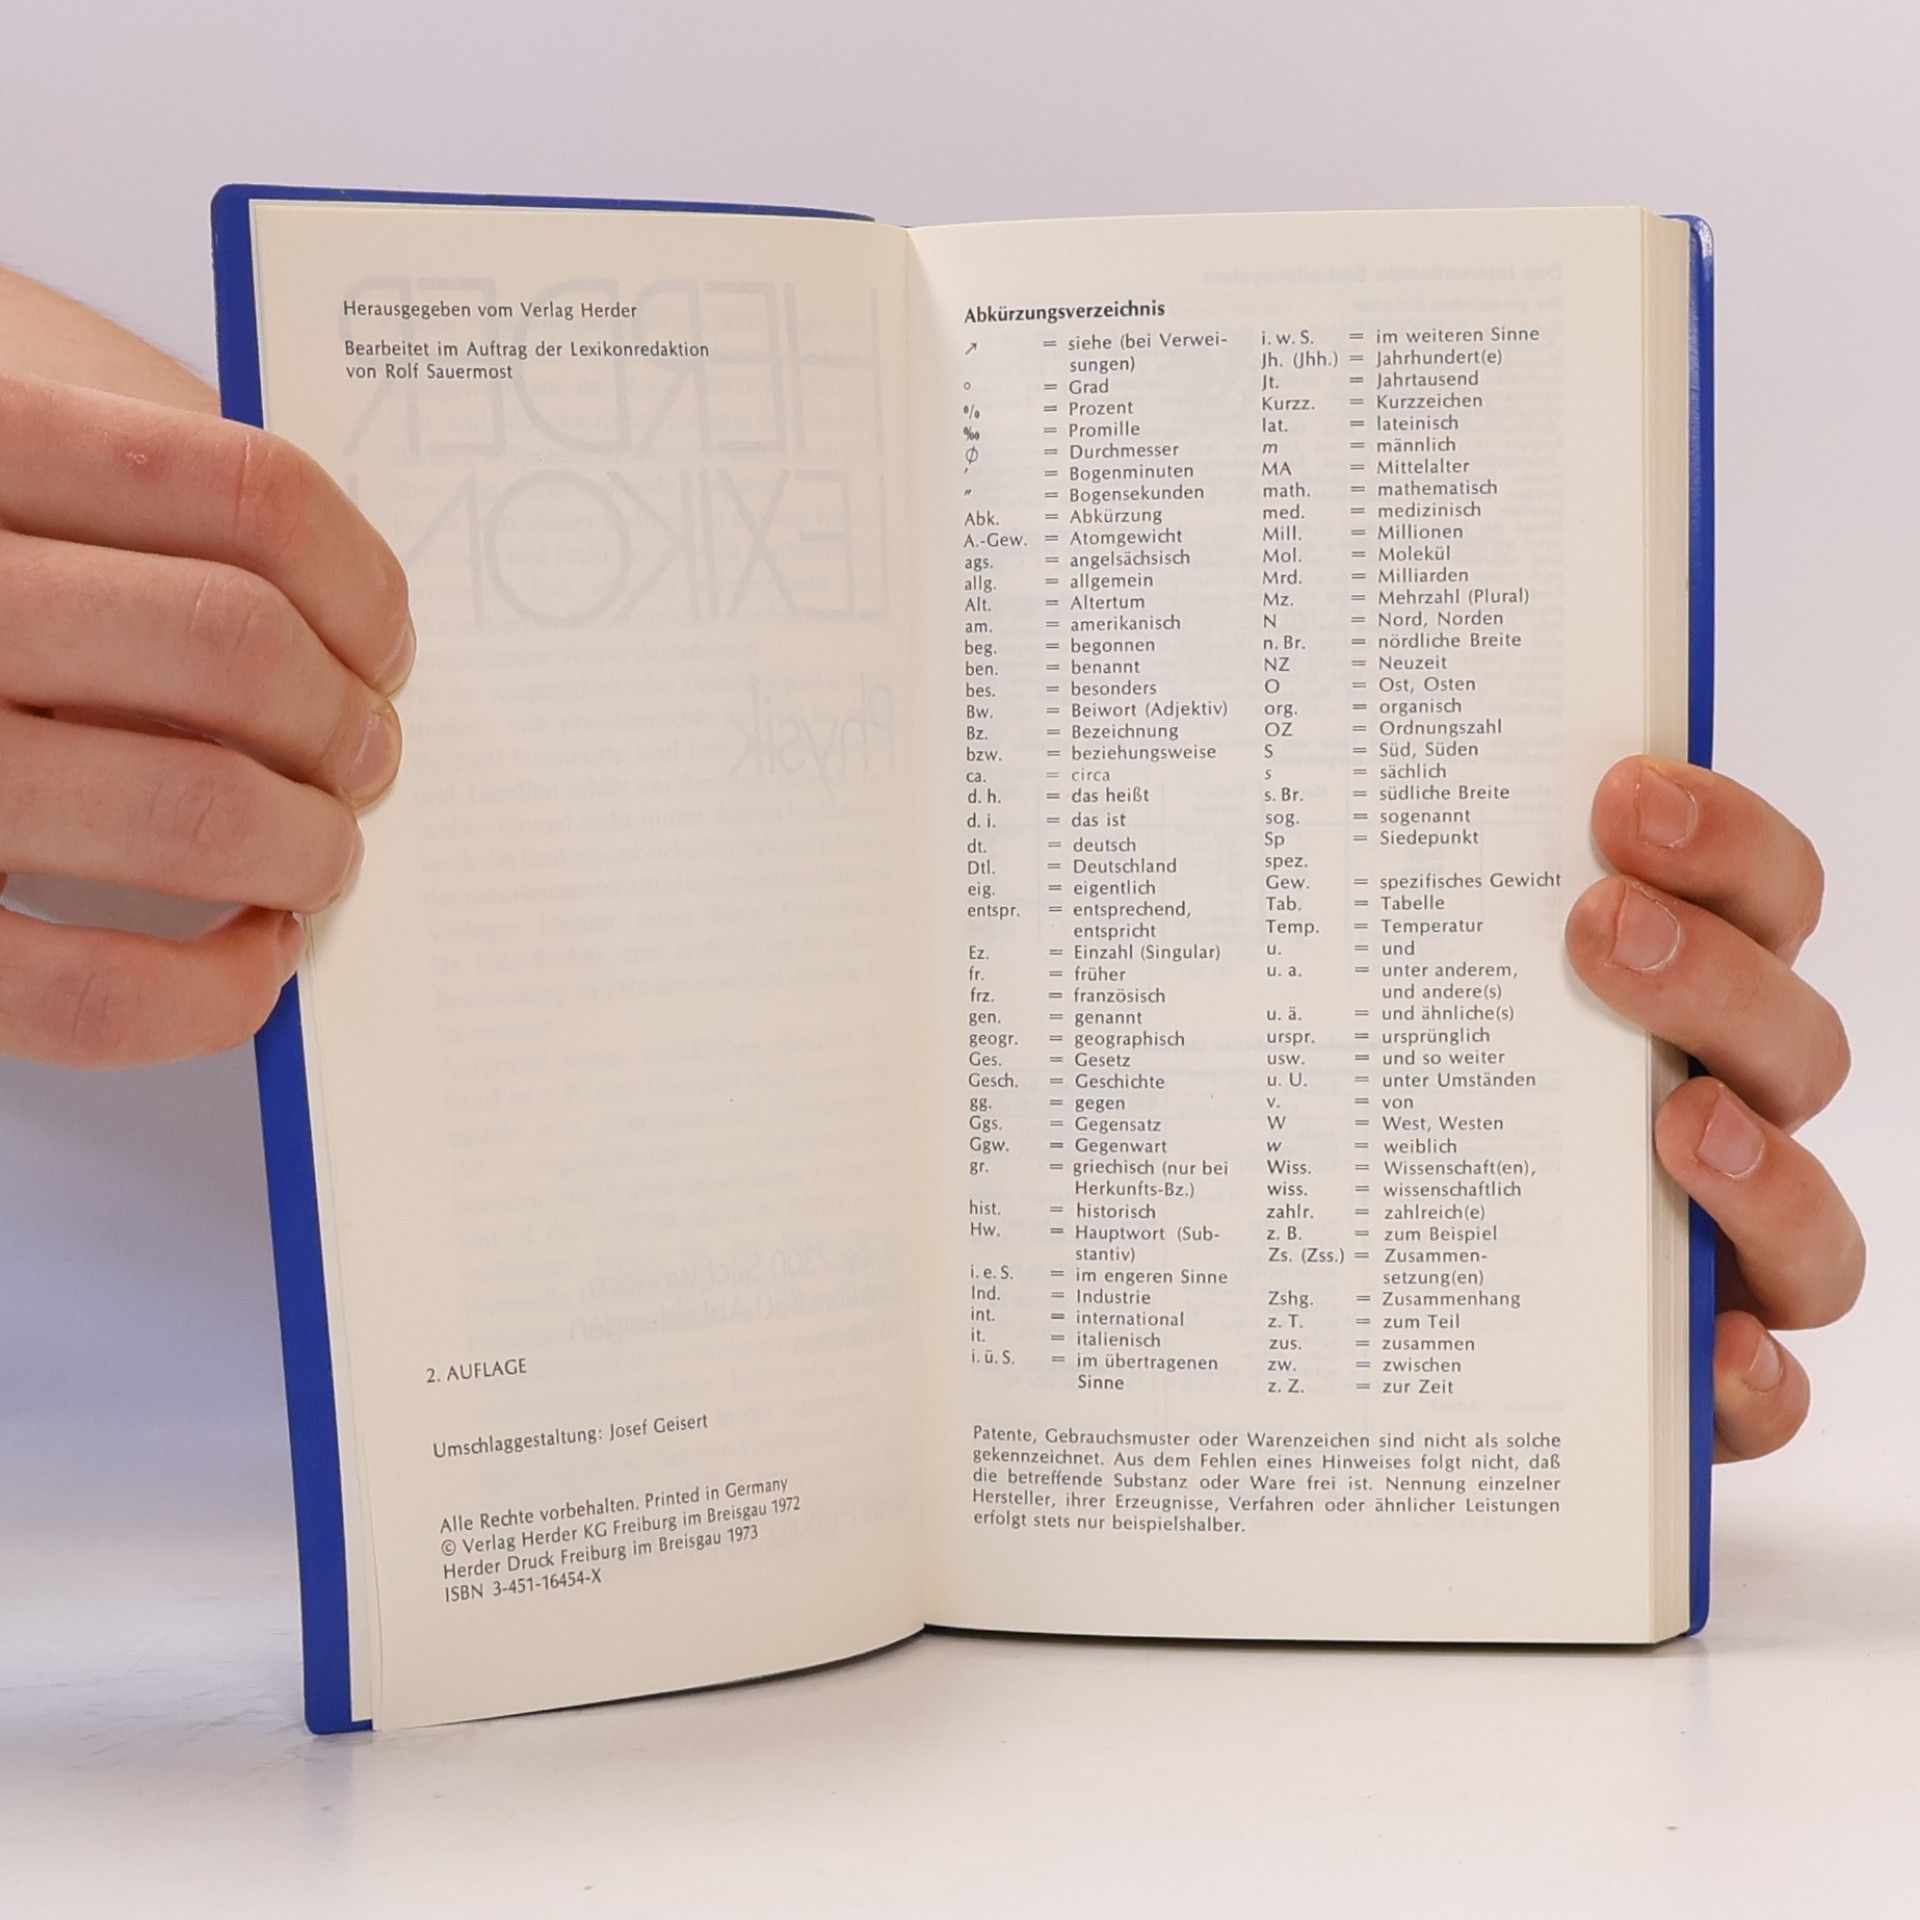 Herausgegeben vom Verlag Herder
Bearbeitet im Auftrag der Lexikonredaktion
von Rolf Sauermost
2. AUFLAGE
Umschlaggestaltung: Josef Geisert
Alle Rechte vorbehalten. Printed in Germany
© Verlag Herder KG Freiburg im Breisgau 1972
Herder Druck Freiburg im Breisgau 1973
ISBN 3-451-16454-X
Abkürzungsverzeichnis
↗ = siehe (bei Verwei-
sungen)
° = Grad
% = Prozent
‰ = Promille
∅ = Durchmesser
′ = Bogenminuten
″ = Bogensekunden
Abk. = Abkürzung
A.-Gew. = Atomgewicht
ags. = angelsächsisch
allg. = allgemein
Alt. = Altertum
am. = amerikanisch
beg. = begonnen
ben. = benannt
bes. = besonders
Bw. = Beiwort (Adjektiv)
Bz. = Bezeichnung
bzw. = beziehungsweise
ca. = circa
d. h. = das heißt
d. i. = das ist
dt. = deutsch
Dtl. = Deutschland
eig. = eigentlich
entspr. = entsprechend,
entspricht
Ez. = Einzahl (Singular)
fr. = früher
frz. = französisch
gen. = genannt
geogr. = geographisch
Ges. = Gesetz
Gesch. = Geschichte
gg. = gegen
Ggs. = Gegensatz
Ggw. = Gegenwart
gr. = griechisch (nur bei
Herkunfts-Bz.)
hist. = historisch
Hw. = Hauptwort (Sub-
stantiv)
i. e. S. = im engeren Sinne
Ind. = Industrie
int. = international
it. = italienisch
i. ü. S. = im übertragenen
Sinne
i. w. S. = im weiteren Sinne
Jh. (Jhh.) = Jahrhundert(e)
Jt. = Jahrtausend
Kurzz. = Kurzzeichen
lat. = lateinisch
m = männlich
MA = Mittelalter
math. = mathematisch
med. = medizinisch
Mill. = Millionen
Mol. = Molekül
Mrd. = Milliarden
Mz. = Mehrzahl (Plural)
N = Nord, Norden
n. Br. = nördliche Breite
NZ = Neuzeit
O = Ost, Osten
org. = organisch
OZ = Ordnungszahl
S = Süd, Süden
s = sächlich
s. Br. = südliche Breite
sog. = sogenannt
Sp = Siedepunkt
spez.
Gew. = spezifisches Gewicht
Tab. = Tabelle
Temp. = Temperatur
u. = und
u. a. = unter anderem,
und andere(s)
u. ä. = und ähnliche(s)
urspr. = ursprünglich
usw. = und so weiter
u. U. = unter Umständen
v. = von
W = West, Westen
w = weiblich
Wiss. = Wissenschaft(en),
wiss. = wissenschaftlich
zahlr. = zahlreich(e)
z. B. = zum Beispiel
Zs. (Zss.) = Zusammen-
setzung(en)
Zshg. = Zusammenhang
z. T. = zum Teil
zus. = zusammen
zw. = zwischen
z. Z. = zur Zeit
Patente, Gebrauchsmuster oder Warenzeichen sind nicht als solche
gekennzeichnet. Aus dem Fehlen eines Hinweises folgt nicht, daß
die betreffende Substanz oder Ware frei ist. Nennung einzelner
Hersteller, ihrer Erzeugnisse, Verfahren oder ähnlicher Leistungen
erfolgt stets nur beispielshalber.